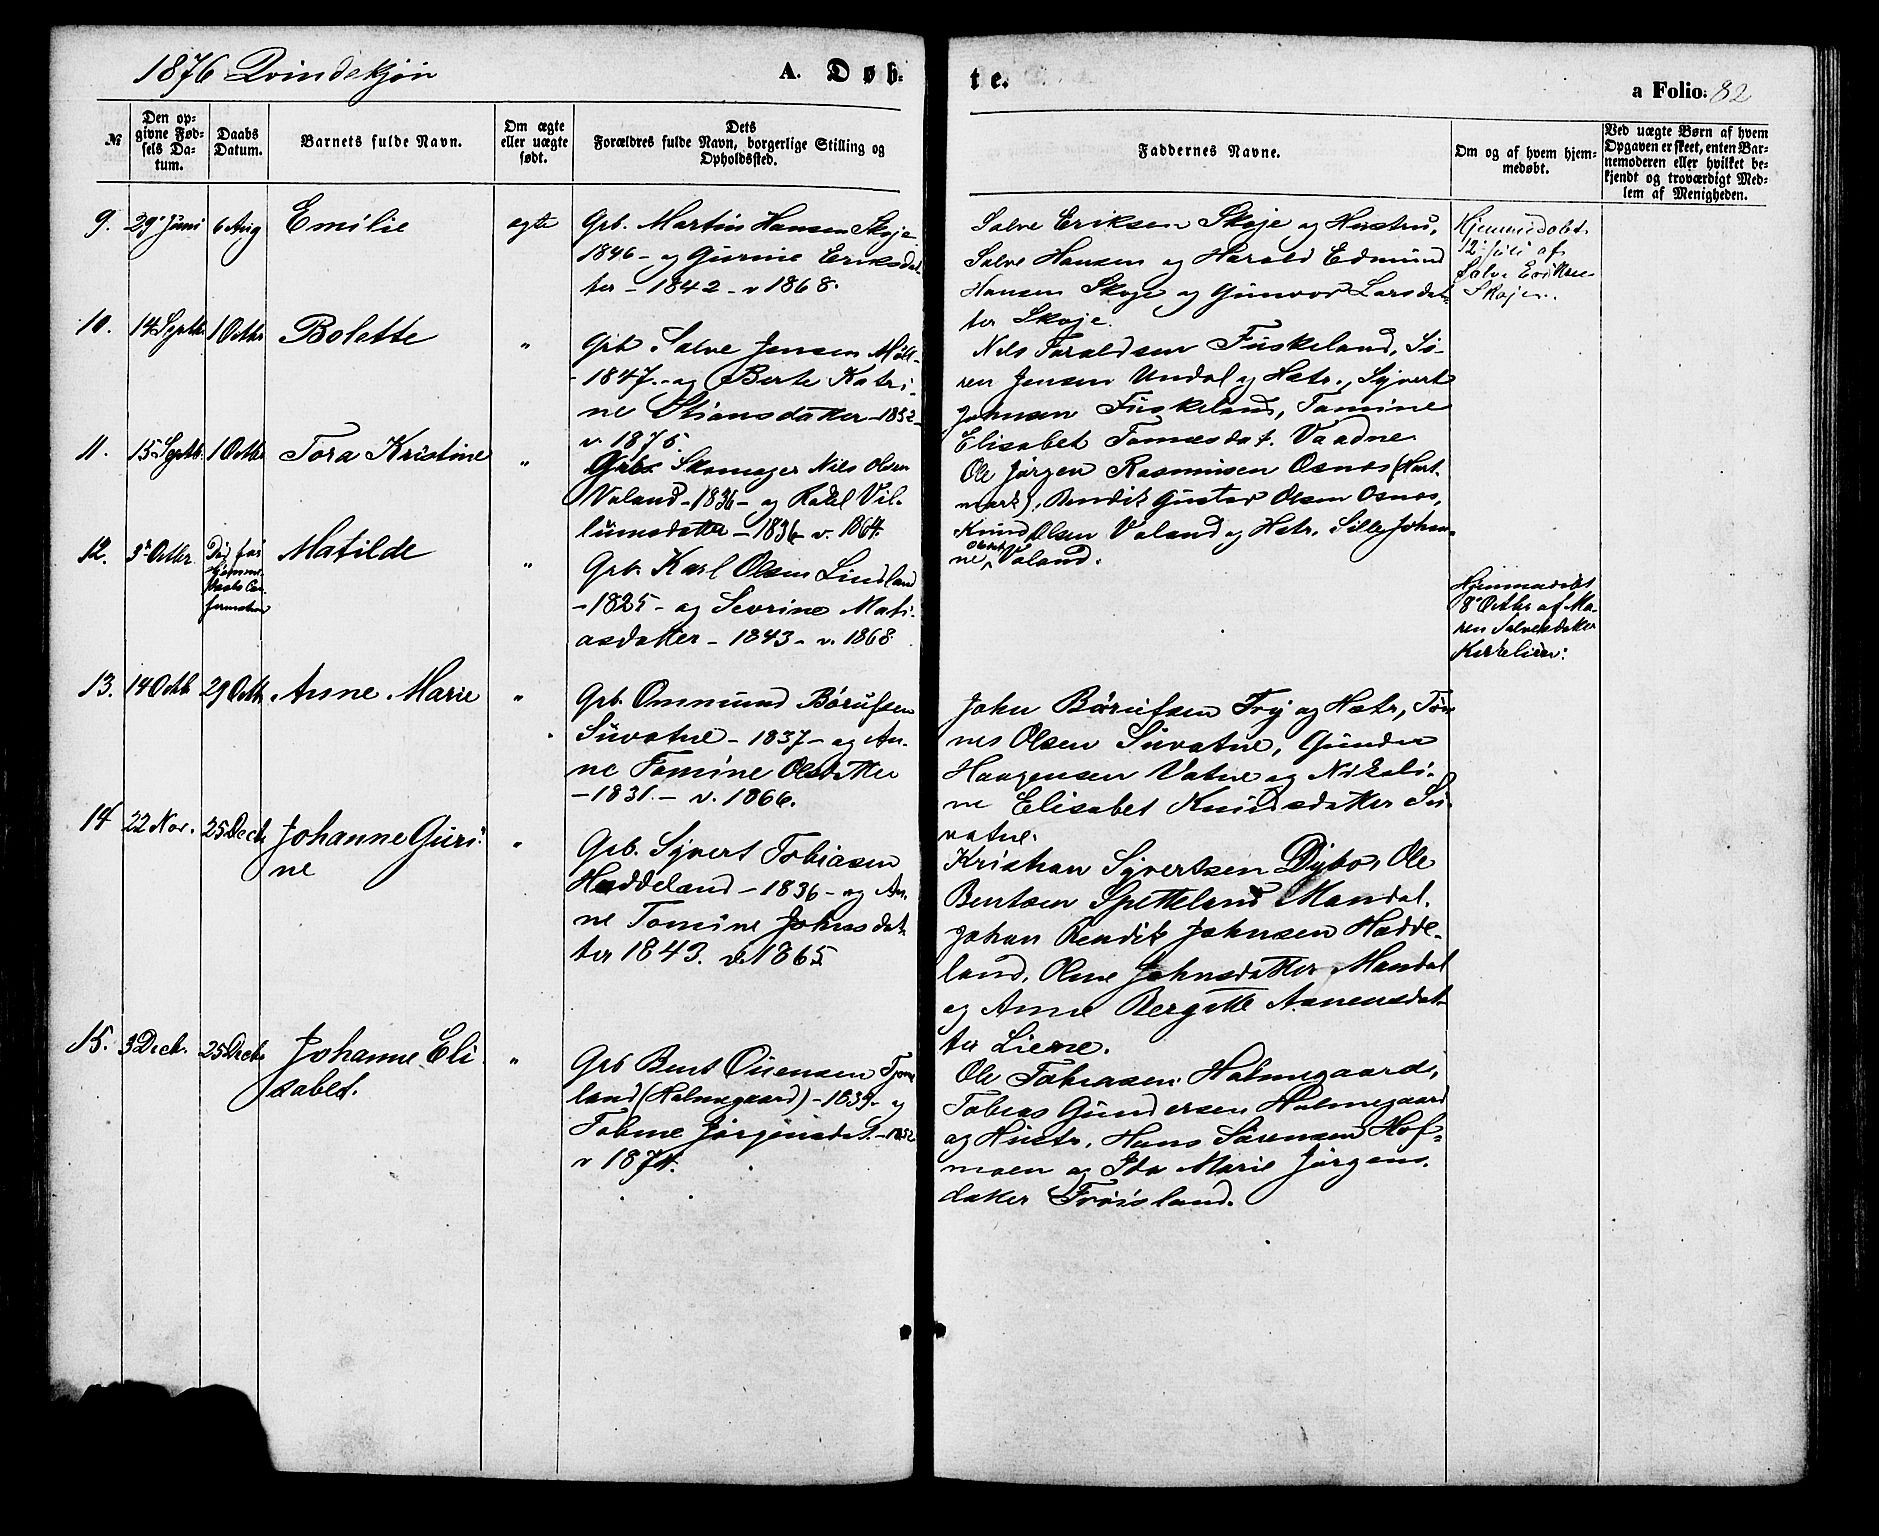 1876 Qvindekjøn
A. Døb-
te.
a Folio. 82
№
Den op-
givne Fød-
sels Da-
tum.
Daabs
Datum.
Barnets fulde Navn.
Om ægte
eller uægte
født.
Dets
Forældres fulde Navn, borgerlige Stilling og
Opholdssted.
Faddernes Navne.
Om og af hvem hjem-
medøbt.
Ved uægte Børn af hvem
Opgaven er skeet, enten Bar-
nemoderen eller hvilket be-
kjendt og troværdigt Med-
lem af Menigheden.
9. 29 Juni 6 Aug Emilie egte
Grb. Martin Hansen Skoje
1846 - og Gurine Eriksdat-
ter - 1842 - v 1868.
Salve Eriksen Skoje og Hustru,
Salve Hansen og Harald Edmund
Hansen Skoje og Gunvor Larsdat-
ter Skoje.
Hjemmedøbt
12 Juli af
Salve Eriksen
Skoje.
10. 14 Septbr 1 Octbr Bolette "
Grb. Salve Jensen Møll
- 1847. - og Berte Katri-
ne Stiansdatter - 1852 -
v. 1875.
Nils Taraldsen Fuskeland, Sø-
ren Jensen Undal og Hstr., Syvert
Johnsen Fuskeland, Tomine
Elisabet Tomesdat. Vaadne
11. 15 Septb. 1 Octbr Tora Kristine "
Grb. Skomager Nils Olsen
Valand - 1836 - og Rakel Vil-
lumsdatter - 1836 - v. 1864.
Ole Jørgen Rasmusen Osnes (Hart-
mark), Bendik Gustav Olsen Osnes,
Knud Olsen Valand og Hstr. Sille Johan-
ne Valand.
12. 3 Octbr. Død før
hjemme-
daabs Con-
firmation
Matilde "
Grb. Karl Olsen Lindland
- 1825 - og Sevrine Mati-
asdatter - 1843 - v. 1868
Hjemmedøbt
8 Octbr af Ma-
ren Salvesdatter
Kirkelien:
13. 14 Octb. 29 Octb. Anne Marie "
Grb. Ommund Børufsen
Suvatne - 1837 - og An-
ne Tomine Olsdatter
- 1831. - v. 1866.
John Børufsen Try og Hstr, Tøn-
nes Olsen Suvatne, Gunder
Haagensen Vatne og Nikoli-
ne Elisabet Knudsdatter Su-
vatne.
14 22 Nov. 25 Decb. Johanne Guri-
ne "
Grb. Syvert Tobiasen
Haddeland - 1836 - og An-
ne Tomine Johnsdat-
ter 1843. v. 1865
Kristian Syvertsen Dybo, Ole
Bentsen Spetteland Mandal,
Johan Bendik Johnsen Hadde-
land, Olene Johnsdatter Mandal
og Anne Bergitte Aanensdat-
ter Lierne.
15. 3 Decb. 25 Decb. Johanne Eli-
sabet. "
Grb Bent Ouensen Tjom-
land (Holmegaard) - 1839 - og
Tobine Jørgensdat. - 1852
v 1874.
Ole Tobiasen Holmegaard,
Tobias Gundersen Holmegaard
og Hustr., Hans Sørensen Hof-
moen og Ida Marie Jørgens-
datter Frøisland.